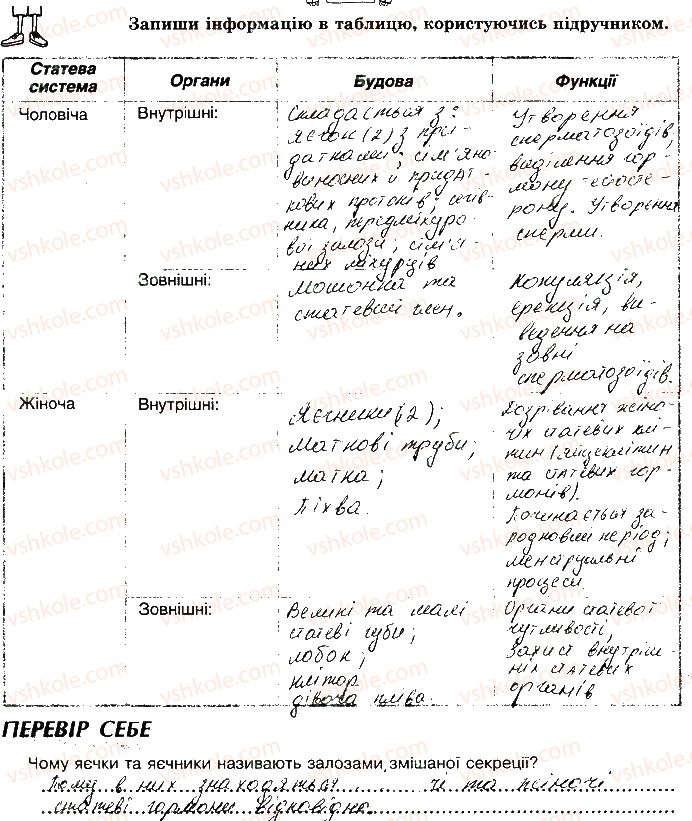 Запиши інформацію в таблицю, користуючись підручником.
Статева система
Органи
Будова
Функції
Чоловіча
Внутрішні:
Складається з:
яєчок (2) з при-
датками; сім'яно-
виносних й придат-
кових протоків; сечів-
ника, передміхуро-
вої залози, сім'я-
них міхурців
Утворення
сперматозоїдів,
виділення гор-
мону тесте-
рону. Утворення
сперми.
Зовнішні:
Мошонка та
статевий член.
Копуляція,
ерекція, ви-
ведення на
зовні
сперматозоїдів.
Жіноча
Внутрішні:
Яєчники (2);
Маткові труби;
матка;
Піхва.
Дозрівання жіно-
чих статевих клі-
тин (яйцеклітин
та статевих гор-
монів).
Починається за-
родковий період;
менструальні
процеси
Зовнішні:
Великі та малі
статеві губи;
лобок;
клітор
дівоча пліва.
Органи статевої
чутливості,
Захист внутріш-
ніх статевих
органів
ПЕРЕВІР СЕБЕ
Чому яєчки та яєчники називають залозами змішаної секреції?
Тому в них знаходяться чі та жіночі
статеві гормони відповідно.
vshkole.com